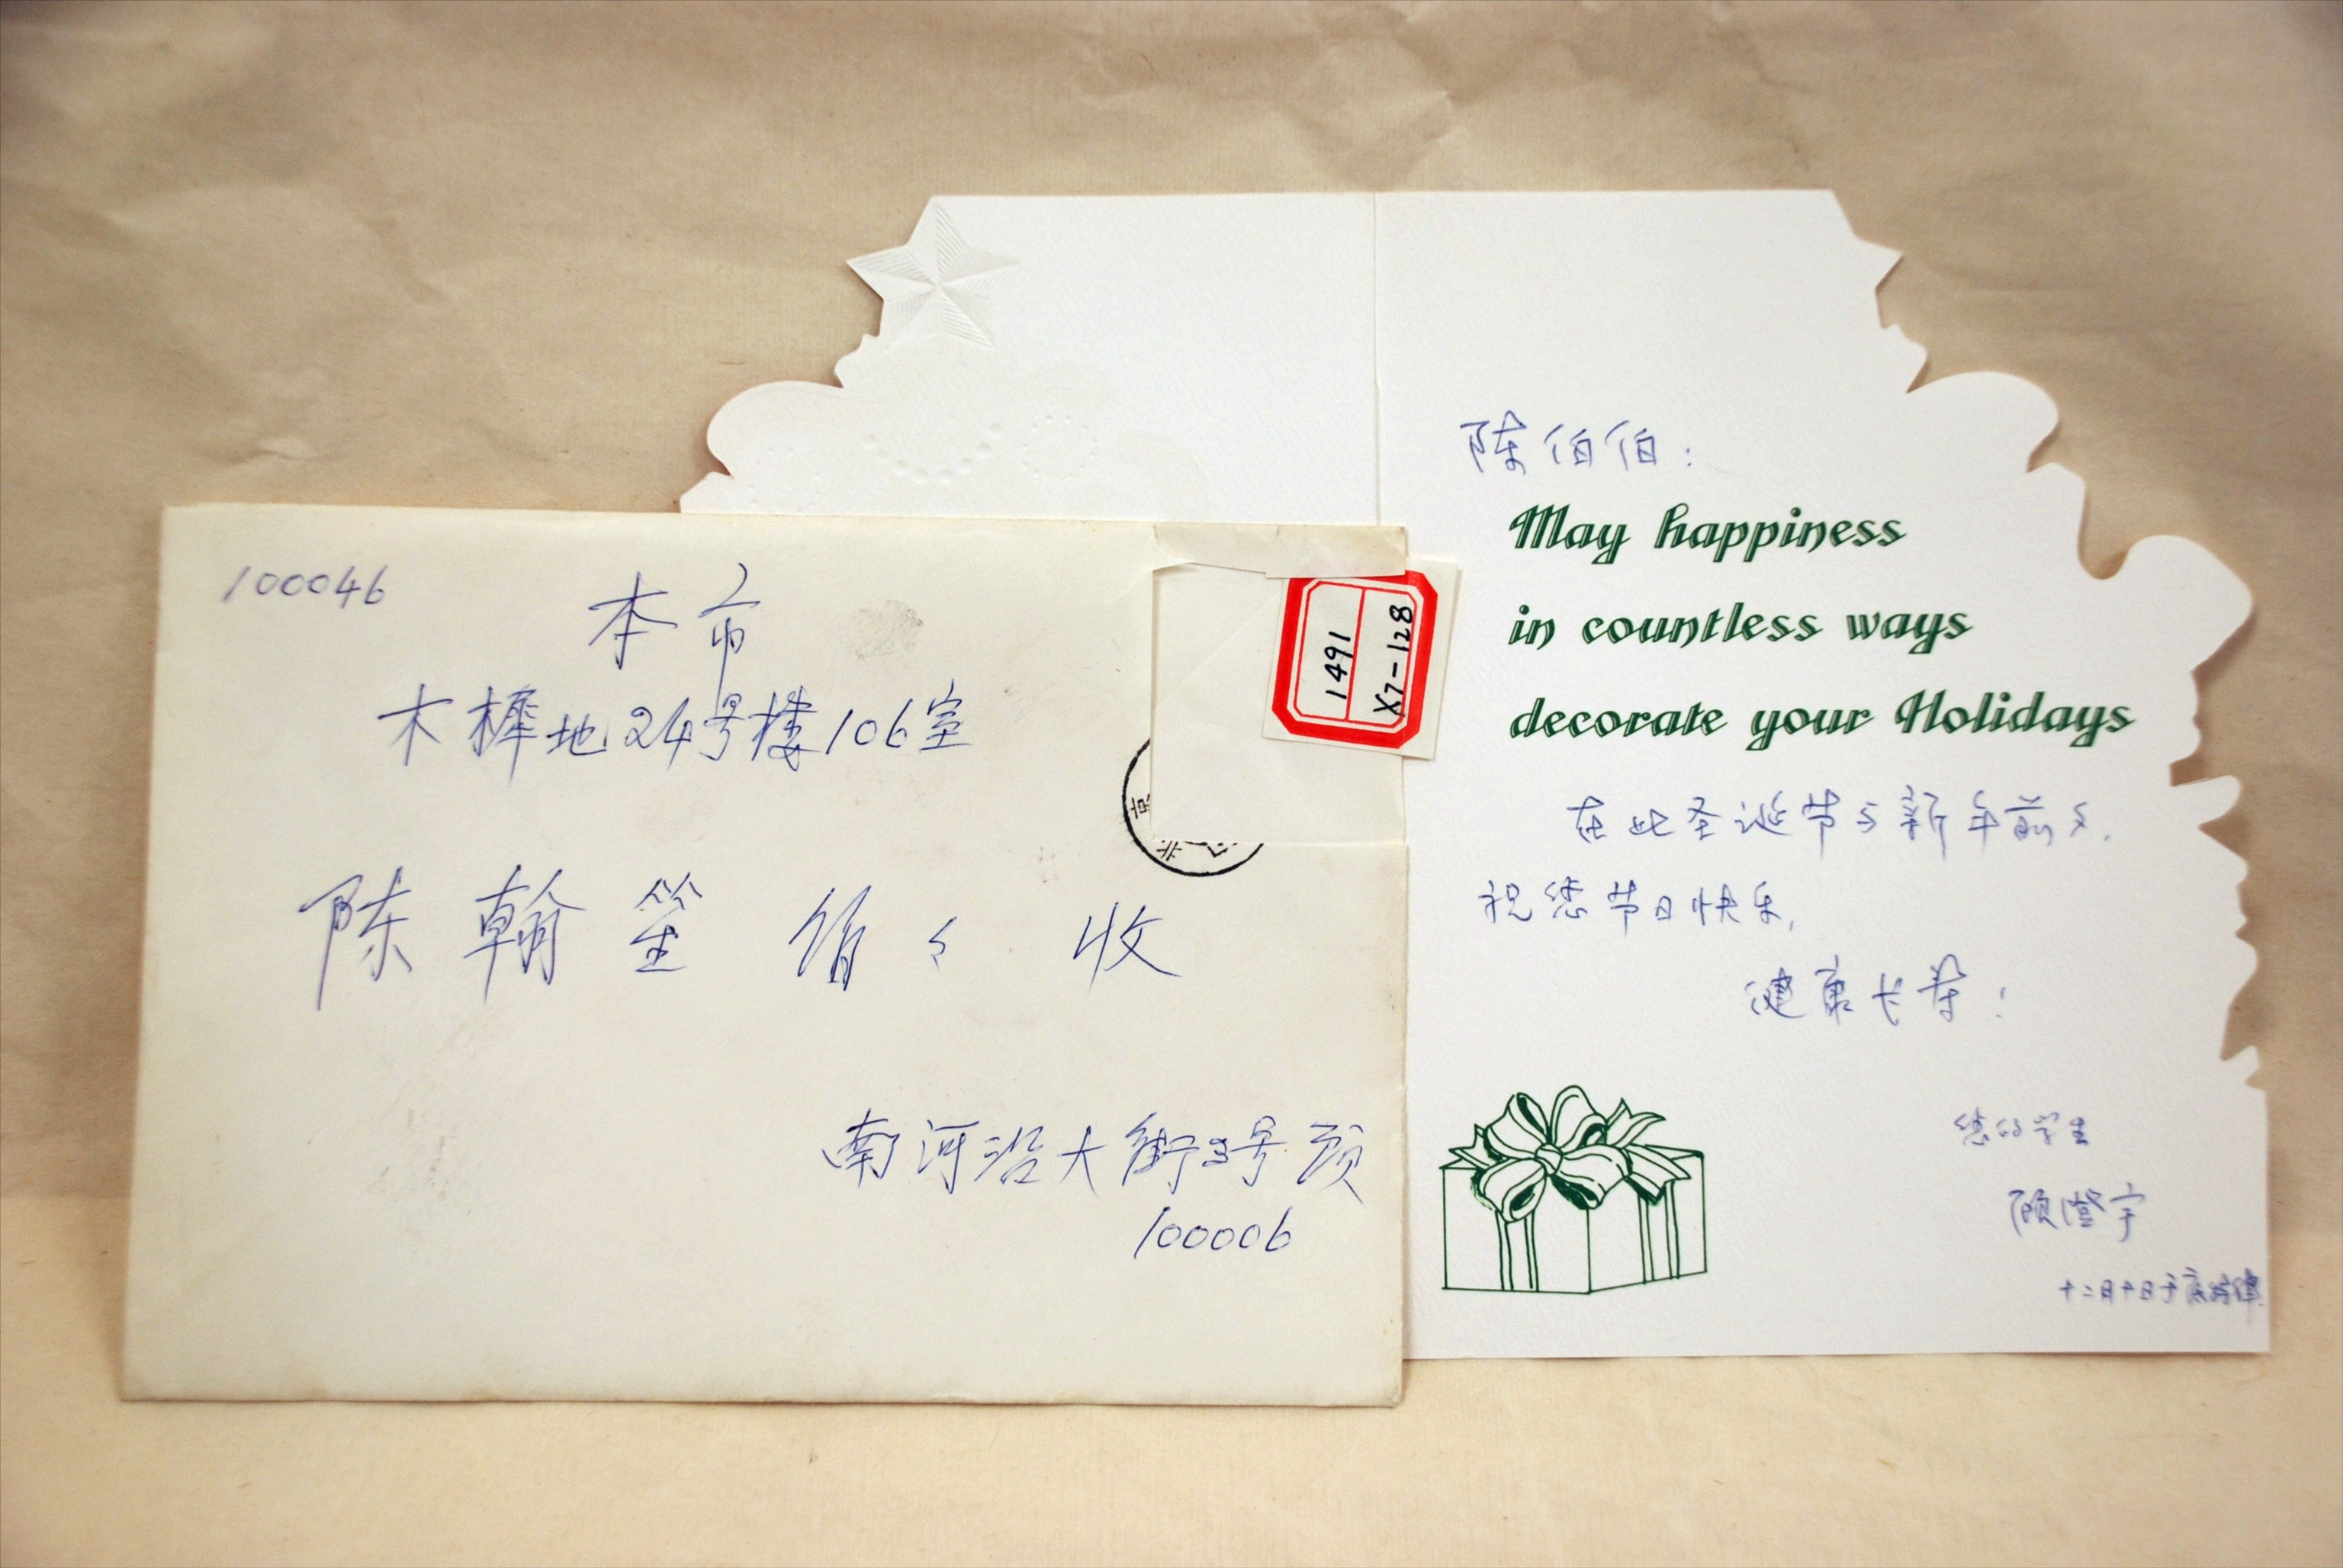 100046
本市
木樨地24号楼106室
陈翰笙 伯々 收
南河沿大街3号 顾
100006
1491
X7-128
京
北
陈伯伯:
May happiness
in countless ways
decorate your Holidays
在此圣诞节与新年前夕,
祝您节日快乐,
健康长寿!
您的学生
顾澄宇
十二月十日于底特律